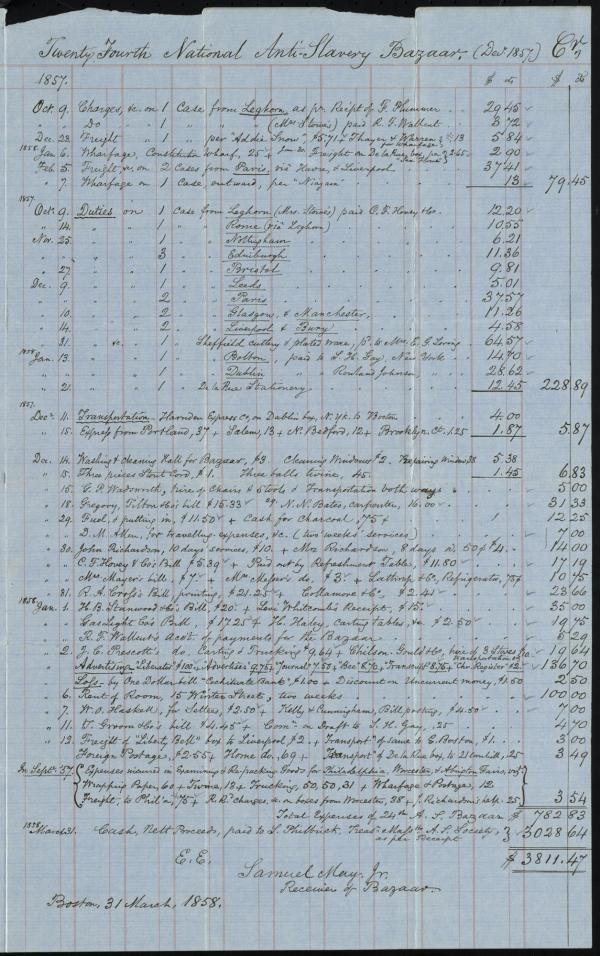 Twenty Fourth National Anti-Slavery Bazaar. (Dec. 1857.) Cr.
1857. $ cts $ cts
Oct. 9. Charges, &c on 1 Case from Leghorn, as pr. Reipt of F. Plummer 29.45
" " Do " 1 " " " (Mrs Stowe's) paid R. F. Wallcut 3.72
Dec. 23. Freight " 1 " " per "Addie Snow" $5.71 + Thayer & Warren for wharfage /13 5.84
1858. Jan. 6. Wharfage, Constitution wharf, 25 + Freight on De la Rue box, 2.65 2.90
Feb. 5. Freight &c. on 2 Cases from Paris, via Havre & Liverpool 37.41
" 7. Wharfage on 1 Case, outward, per "Niagara" 13 79.45
1857.
Oct. 9. Duties on 1 Case from Leghorn (Mrs. Stowe's) paid C. F. Hovey & Co. 12.20
" 14. " " 1 " " Rome (via Leghorn) 10.55
Nov. 25. " " 1 " " Nottingham 6.21
" " " " 3 " " Edinburgh 11.36
" 27 " " 1 " " Bristol 9.81
Dec. 9. " " 1 " " Leeds 5.01
" " " " 2 " " Paris 37.57
" 10. " " 2 " " Glasgow, & Manchester, 11.26
" 14. " " 2 " " Liverpool & Bury 4.58
" 21. " &c. 1 " Sheffield cutlery & plated ware, p. to Mrs. E. G. Loring 64.57
1858 Jan. 13. " " 1 " " Bolton, paid to S. H. Gay, New York 14.70
" " " " 1 " " Dublin " Rowland Johnson, " 28.62
" 21. " " 1 " De la Rue Stationery 12.45 228.89
1857.
Dec. 11. Transportation. Harnden Express Co, on Dublin box, N. Yk. to Boston 4.00
" 15. Express from Portland, 37 + Salem, 13 + N. Bedford, 12 + Brooklyn, Ct. 1.25 1.87 5.87
Dec. 14. Washing & cleaning Hall for Bazaar, $3. Cleaning Windows $2. Repairing Window 38 5.38
" 15. Three pieces Stout Cord, $1. Three balls twine, 45. 1.45 6.83
" 16. G. P. Wadsworth, hire of Chairs & Stools & Transportation both ways 5 00
" 18. Gregory, Tilton & Co's bill $15.33 N. N. Bates, carpenter, 16.00 31 33
" 29. Fuel, & putting in, $11.50 + Cash for Charcoal, 75 12 25
" " D. M. Allen, for travelling expenses, &c. (two weeks' services) 7 00
" 30. John Richardson, 10 days services, $10. + Mrs Richardson, 8 days at 50¢ $4. 14 00
" " C. F. Hovey & Co's Bill $5.39 + Paid out by Refreshment Table, $11.80 17 19
" " Mrs Mayer's bill, $7 + Mrs Messer's do, $3 + Lathrop & Co, Refrigerator, 75¢ 10 75
" 31. R. A. Croft's Bill, printing, $21.25 + Collamore & Co. $2.41 23 66
1858. Jan. 1. H. B. Stanwood & Co's Bill, $20 + Levi Whitcomb's Receipt, $15. 35 00
" " Gas Light Co's Bill $17.25 + H. Haley, carting Tables, &c $2.50 19 75
" " R. F. Wallcut's acct of payments for the Bazaar 5 29
" 2. J. C. Prescott's do. Carting & Trucking $9.64 + Chilson, Gould & Co, hire of 3 Stoves & Transportation $10 19 64
" " Advertising. "Liberator" $100. "Advertiser" 9.75 + "Journal" 7.50 + "Bee" 8.70, "Transcript" 8.75 + Chr. Register $2. 136 70
" " Loss - by One Dollar bill "Cochituate Bank" $1.00 & Discount on Uncurrent money, $1.50 2 50
" 6. Rent of Room, 15 Winter Street, two weeks 100 00
" 7. W. O. Haskell, for Settees, $2.50 + Kelly & Cunningham, Bill posting, $4.50 7 00
" 11. T. Groom & Co's bill $4.45 + Comn on Draft to S. H. Gay, .25 4 70
" 12. Freight of "Liberty Bell" box to Liverpool, $2. + Transportn of same to E. Boston, $1. 3 00
Foreign Postage, $2.55 + Home do, 69 + Transportn of De la Rue box, to 21 Cornhill, 25 3 49
In Septr. '57. Expenses incurred in Examining & Repacking Goods for Philadelphia, Worcester, & Abington Fairs, viz.
Wrapping Paper, 60 + Twine, 13 + Trucking, 50, 50, 31 + Wharfage & Portage, 12
Freight, to Phila, 75 + R. R. charges, &c. on boxes from Worcester, 38 + J. Richardson's help. 25 3 54
Total Expenses of 24th A. S. Bazaar $ 782 83
1858 March 31. Cash, Nett Proceeds, paid to S. Philbrick, Treasr Massts A. S. Society, as per Receipt 3028 64
$ 3811.47
E. E.
Samuel May, Jr.
Receiver of Bazaar.
Boston, 31 March, 1858.